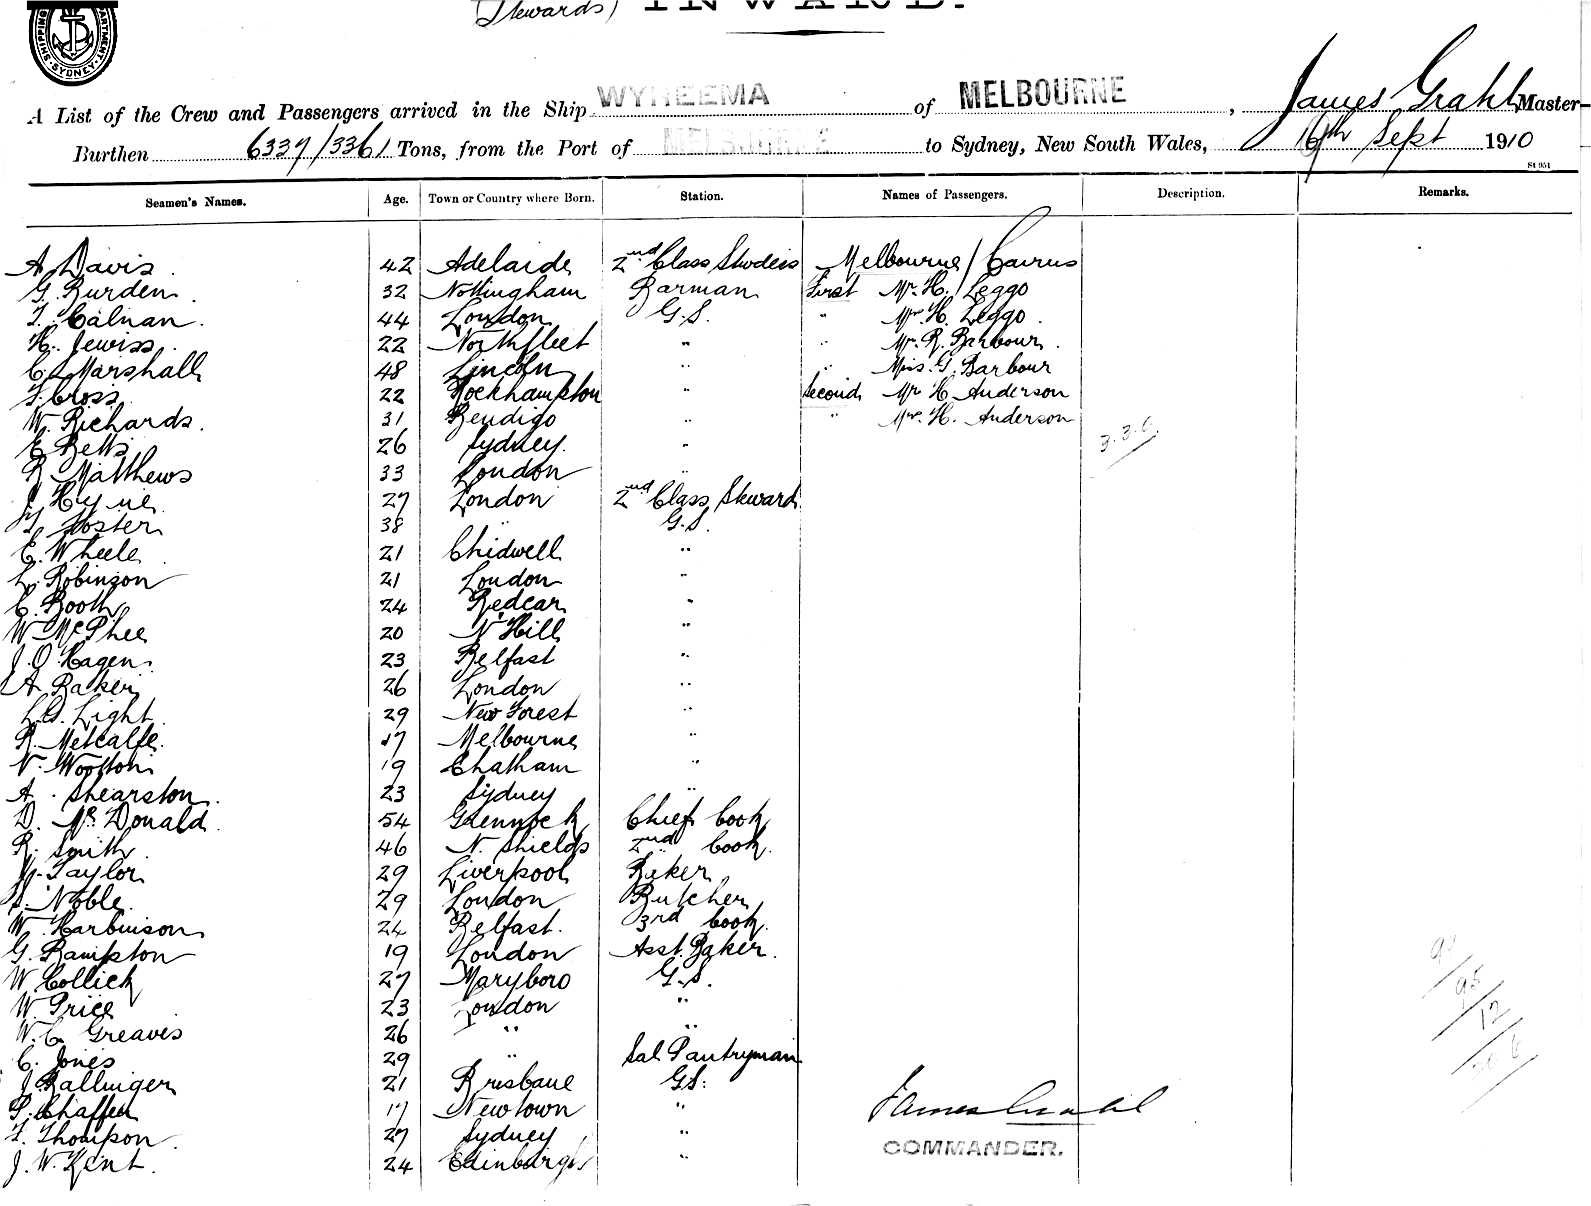 (Stewards) INWARD.
SHIPPING DEPARTMENT SYDNEY
A List of the Crew and Passengers arrived in the Ship WYREEMA of MELBOURNE, James Grahl Master
Burthen 6337/3361 Tons, from the Port of MELBOURNE to Sydney, New South Wales, 16th Sept 1910
St 951
Seamen's Names. Age. Town or Country where Born. Station. Names of Passengers. Description. Remarks.
A Davis 42 Adelaide 2nd Class Stwdess Melbourne / Cairns
G. Burden 32 Nottingham Barman First Mr. H. Leggo
T. Calnan. 44 London G.S. " Mrs H. Leggo.
H. Jewiss. 22 Northfleet " " Mr. R. Barbour.
C. Marshall 48 Lincoln " " Miss. G. Barbour
T. Cross 22 Rockhampton " Second Mr H. Anderson
W. Richards. 31 Bendigo " " Mrs. H. Anderson
E Betts 26 Sydney. " 3.3.6.
R Matthews 33 London "
J. Hyne 27 London 2nd Class Steward
T. Foster 38 " G.S.
E. Wheele 21 Chidwell "
L. Robinson 21 London "
C. Booth 24 Redcar "
W McPhee 20 N Hill "
J. O'Hagen. 23 Belfast "
A Baker 26 London "
L. D. Light. 29 New Forest "
R. Metcalfe. 17 Melbourne "
V. Wootton 19 Chatham "
A. Shearston. 23 Sydney "
D. McDonald. 54 Greenock Chief Cook
R. Smith. 46 N. Shields 2nd Cook.
Taylor 29 Liverpool Baker
S. Noble. 29 London Butcher
W. Harbinson 24 Belfast. 3rd Cook.
G. Rampton 19 London Asst. Baker.
W Collick 27 Maryboro G.S.
W. Price 23 London "
W. C. Greaves 26 " "
C. Jones 29 " Sal Pantryman
J Ballinger 21 Brisbane G.S.
P. Chaffer 17 Newtown " James Grahl
T. Thompson. 27 Sydney " COMMANDER.
J. W. Kent. 24 Edinburgh "
95
12